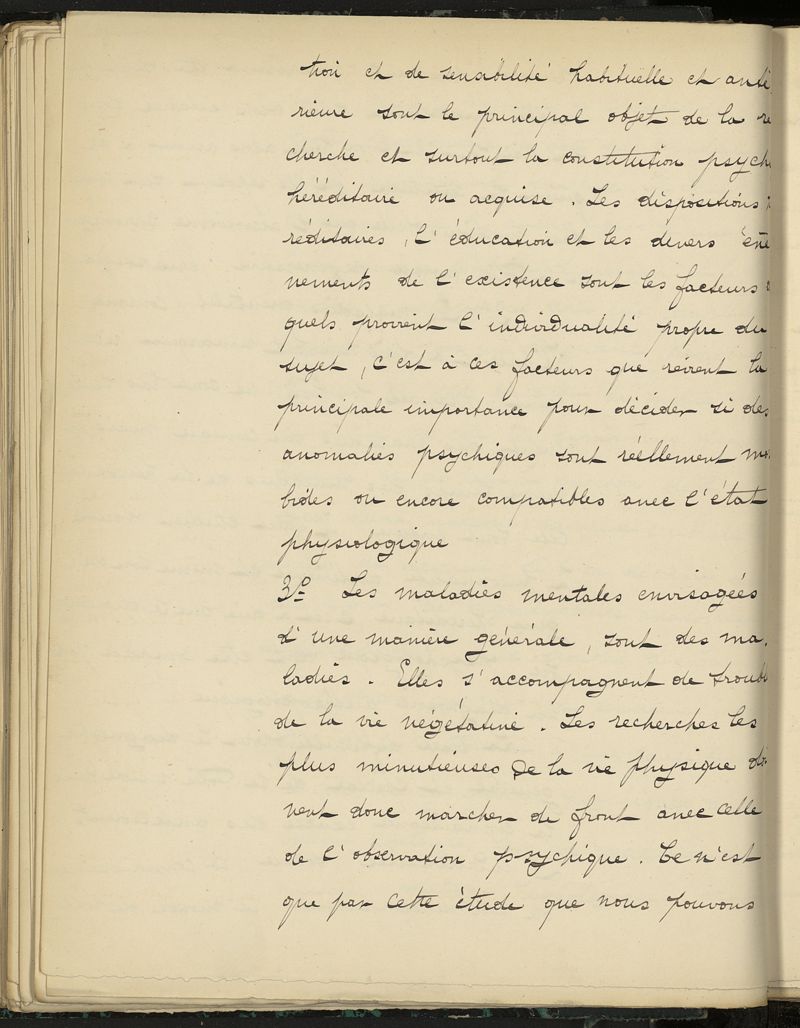 tion et de sensibilité habituelle et anté
rieure sont le principal objet de la re
cherche et surtout la constitution psych
héréditaire ou acquise. Les dispositions
réditaires, l'éducation et les divers évé
nements de l'existence sont les facteurs
quels provient l'individualité propre du
sujet, c'est à ces facteurs que revient la
principale importance pour décider si des
anomalies psychiques sont réellement mo
bides ou encore compatibles avec l'état
physiologique
3º Les maladies mentales envisagées
d'une manière générale, sont des ma
ladies. Elles s'accompagnent de troubl
de la vie végétative. Les recherches les
plus minutieuses de la vie physique doi
vent donc marcher de front avec celle
de l'observation psychique. Ce n'est
que par cette étude que nous pouvons